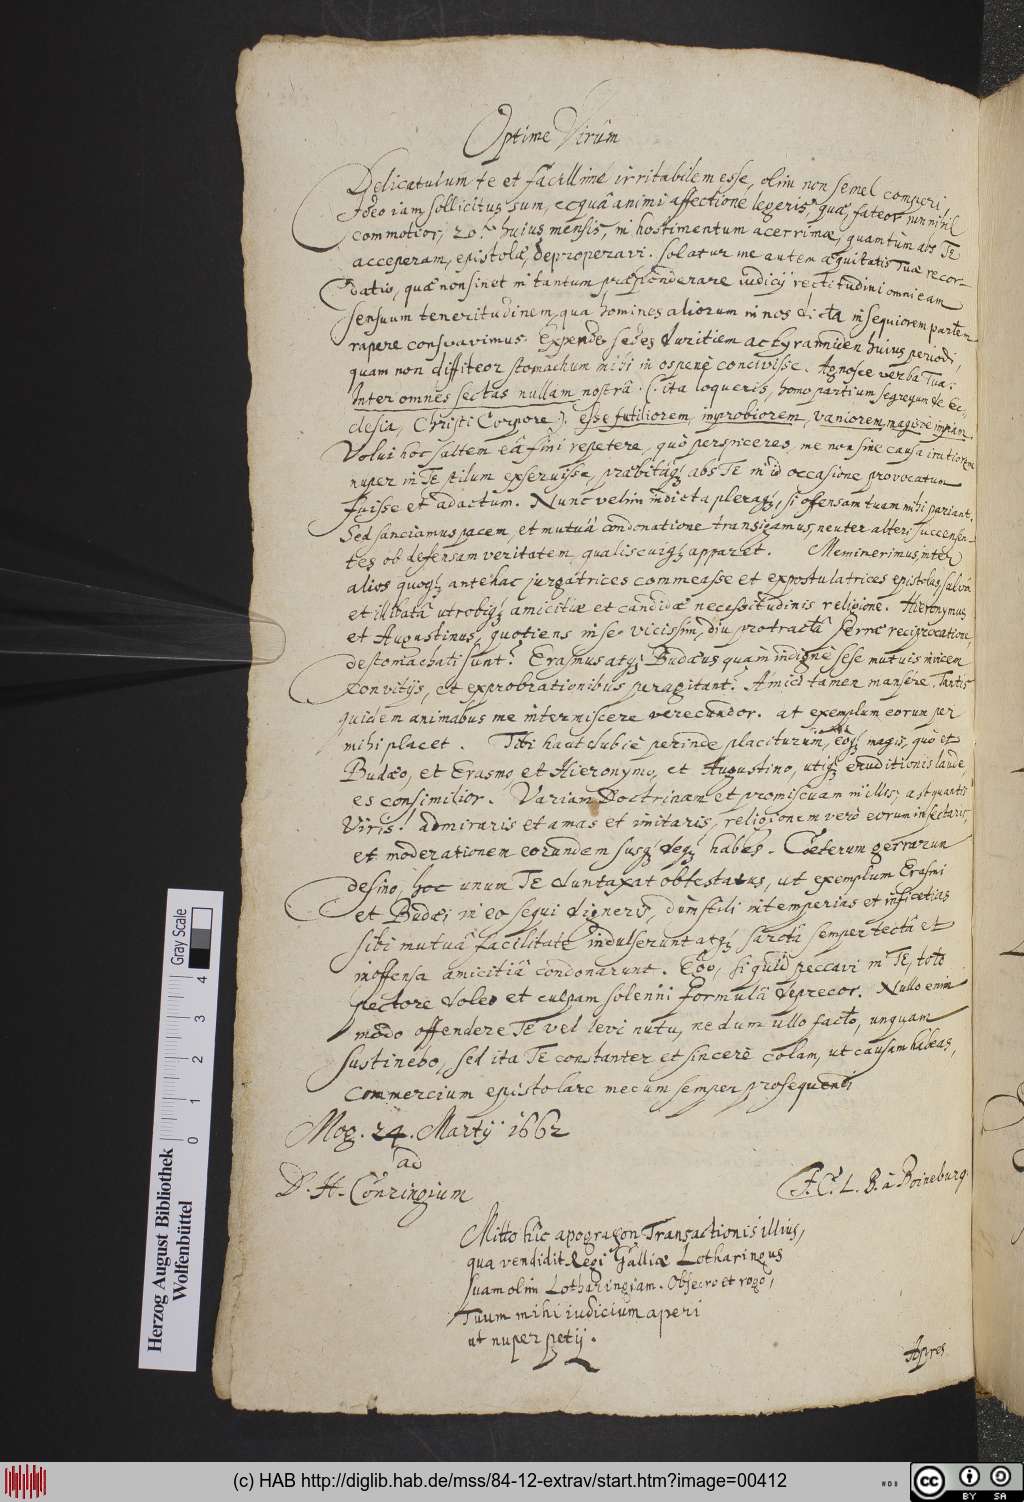 Optime Virûm
Delicatulum te et facillimè irritabilem esse, olim non semel comperi,
Adeo iam sollicitus sum, ecquâ animi affectione legeris, quæ, fateor nonnihil
commotior, 20. huius mensis, in hostimentum acerrimæ, quam tùm abs Te
acceperam, epistolæ, deproperavi. Solatur me autem æquitatis Tuæ recor-
datio, quæ non sinet in tantum præponderare iudicij rectitudini omnem eam
sensuum teneritudinem, qua homines aliorum in nos dicta in sequiorem partem
rapere consuevimus. Expende sodes duritiem ac tyrannidem huius periodi,
quam non diffiteor stomachum mihi in os penè concivisse. Agnosce verba Tua:
Inter omnes sectas nullam nostrâ (: ita loqueris, homo partium segregum de Ec-
clesia, Christi Corpore :) esse futiliorem, improbiorem, vaniorem, magisve impiam.
Volui hoc saltem eâ fini repetere, quò perspiceres, me non sine causa iratiorem
nuper in Te stilum exseruisse, præbitâq; abs Te in id occasione provocatum
fuisse et adactum. Nunc velim indicta pleraq;, si offensam tuam mihi pariant.
Sed sanciamus pacem, et mutuâ condonatione transigamus, neuter alteri succensen-
tes ob defensam veritatem, qualis cuiq; apparet. Meminerimus, inter
alios quoq; antehac jurgatrices commeasse et expostulatrices epistolas, salvâ
et illibatâ utrobiq; amicitiæ et candidæ necessitudinis religione. Hieronymus
et Augustinus, quotiens in se vicissim, diu protractâ serræ reciprocatione
destomachati sunt? Erasmus atq; Budæus quàm indignè sese mutuis invicem
convitijs, et exprobrationibus peragitant? Amici tamen mansere. Tantis
quidem animabus me intermiscere verecundor. at exemplum eorum per
mihi placet. Tibi haut dubiè perinde placiturum, eoq; magis, quò et
Budæo, et Erasmo, et Hieronymo, et Augustino, utiq; eruditionis laude,
es consimilior. Variam Doctrinam et promiscuam in illos, ast quantis
Viris! admiraris et amas et imitaris, religionem verò eorum insectaris,
et moderationem eorundem susq; deq; habes. Cœterum gerrarum
desino, hoc unum Te duntaxat obtestatus, ut exemplum Erasmi
et Budæi in eo sequi digneris, dùm stili intemperias et inficetias
sibi mutuâ facilitate indulserunt atq; sarctâ semper tectâ et
inoffensa amicitiâ condonarunt. Ego, si quid peccavi in Te, toto
pectore doleo et culpam solenni formulâ deprecor. Nullo enim
modo offendere Te vel levi nutu, nedum ullo facto, unquam
sustinebo, sed ita Te constanter et sincerè colam, ut causam habeas,
commercium epistolare mecum semper prosequendi
Mog. 24. Martij 1662
ad
D. H. Conringium
J. C. L. B. à Boineburg.
Mitto hîc apograpon Transactionis illius,
qua vendidit Regi Galliæ Lotharingus
suam olim Lotharingiam. Obsecro et rogo,
Tuum mihi iudicium aperi
ut nuper petij.
Apres
Herzog August Bibliothek
Wolfenbüttel
Gray Scale
0 1 2 3 4
(c) HAB http://diglib.hab.de/mss/84-12-extrav/start.htm?image=00412
WDB
cc BY SA